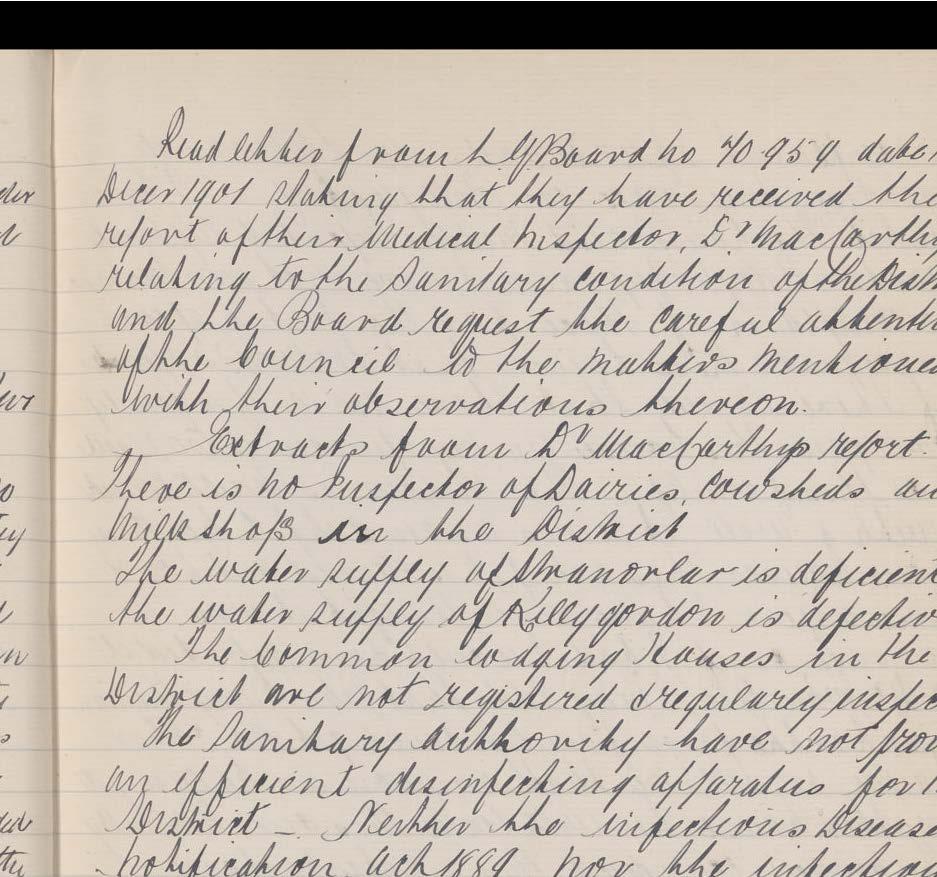 Read letter from L G Board no 70.959 date
Decer 1901 stating that they have received the
report of their Medical Inspector, Dr MacCarthy
relating to the Sanitary condition of the Dist
and the Board request the careful attenti
of the Council to the matters mentioned
with their observations thereon.
Extracts from Dr MacCarthys report.
There is no Inspector of Dairies, Cowsheds an
Milkshops in the District
The water supply of Stranorlar is deficient
the water supply of Killygordon is defectiv
The Common lodging Houses in the
District are not registered & regularly inspec
The Sanitary authority have not prov
an efficient disinfecting apparatus for
District – Neither the infectious Disease
notification act 1889 nor the infection